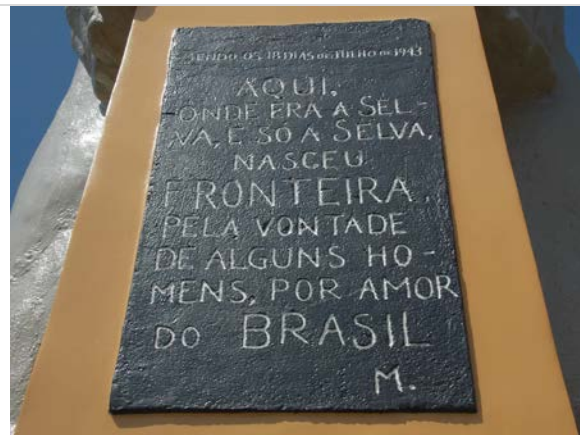 SENDO OS 18 DIAS DE JULHO DE 1943
AQUI,
ONDE ERA A SEL-
VA, E SO A SELVA,
NASCEU
FRONTEIRA,
PELA VONTADE
DE ALGUNS HO-
MENS, POR AMOR
DO BRASIL
M.